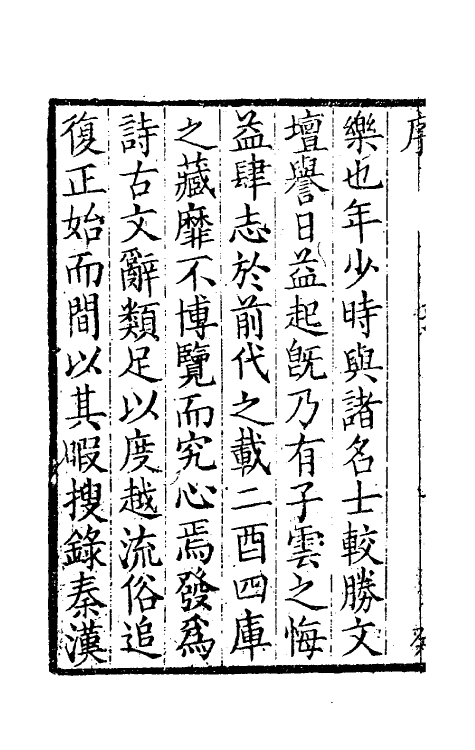 序
樂也年少時與諸名士較勝文
壇譽日益起旣乃有子雲之悔
益肆志於前代之載二酉四庫
之藏靡不博覽而究心焉發爲
詩古文辭類足以度越流俗追
復正始而間以其暇搜錄秦漢